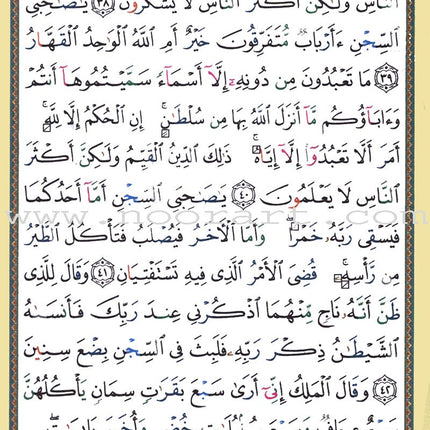 النَّاسِ وَلَٰكِنَّ أَكْثَرَ النَّاسِ لَا يَشْكُرُونَ ٣٨ يَٰصَٰحِبَىِ
السِّجْنِ ءَأَرْبَابٌ مُّتَفَرِّقُونَ خَيْرٌ أَمِ اللَّهُ الْوَٰحِدُ الْقَهَّارُ
٣٩ مَا تَعْبُدُونَ مِن دُونِهِ إِلَّآ أَسْمَآءً سَمَّيْتُمُوهَآ أَنتُمْ
وَءَابَآؤُكُم مَّآ أَنزَلَ اللَّهُ بِهَا مِن سُلْطَٰنٍ إِنِ الْحُكْمُ إِلَّا لِلَّهِ
أَمَرَ أَلَّا تَعْبُدُوٓا إِلَّآ إِيَّاهُ ذَٰلِكَ الدِّينُ الْقَيِّمُ وَلَٰكِنَّ أَكْثَرَ
النَّاسِ لَا يَعْلَمُونَ ٤٠ يَٰصَٰحِبَىِ السِّجْنِ أَمَّآ أَحَدُكُمَا
www.noorart.com
فَيَسْقِى رَبَّهُ خَمْرًا وَأَمَّا الْءَاخَرُ فَيُصْلَبُ فَتَأْكُلُ الطَّيْرُ
مِن رَّأْسِهِ قُضِىَ الْأَمْرُ الَّذِى فِيهِ تَسْتَفْتِيَانِ ٤١ وَقَالَ لِلَّذِى
ظَنَّ أَنَّهُ نَاجٍ مِّنْهُمَا اذْكُرْنِى عِندَ رَبِّكَ فَأَنسَىٰهُ
الشَّيْطَٰنُ ذِكْرَ رَبِّهِ فَلَبِثَ فِى السِّجْنِ بِضْعَ سِنِينَ
٤٢ وَقَالَ الْمَلِكُ إِنِّىٓ أَرَىٰ سَبْعَ بَقَرَٰتٍ سِمَانٍ يَأْكُلُهُنَّ
سَبْعٌ عِجَافٌ وَسَبْعَ سُنۢبُلَٰتٍ خُضْرٍ وَأُخَرَ يَابِسَٰتٍ